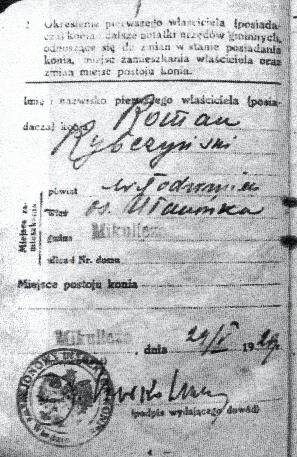 2 Określenie pierwszego właściciela (posiada-
cza) konia i dalsze notatki urzędów gminnych,
odnoszące się do zmian w stanie posiadania
konia, miejsc zamieszkania właściciela oraz
zmian miejsc postoju konia.
Imię i nazwisko pierwszego właściciela (posia-
dacza) konia Roman
Rybczyński
Miejsce za-
mieszkania
powiat
wieś os. Ułanówka
gmina Mikulicze
ulica i Nr. domu
Miejsce postoju konia
Mikulicze, dnia 29/I 19
(podpis wydającego dowód)